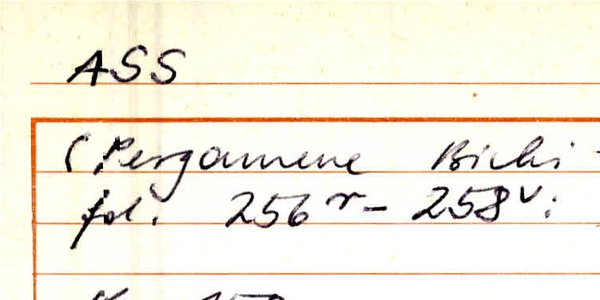 ASS
(Pergamene Bichi -
fol. 256r - 258v: